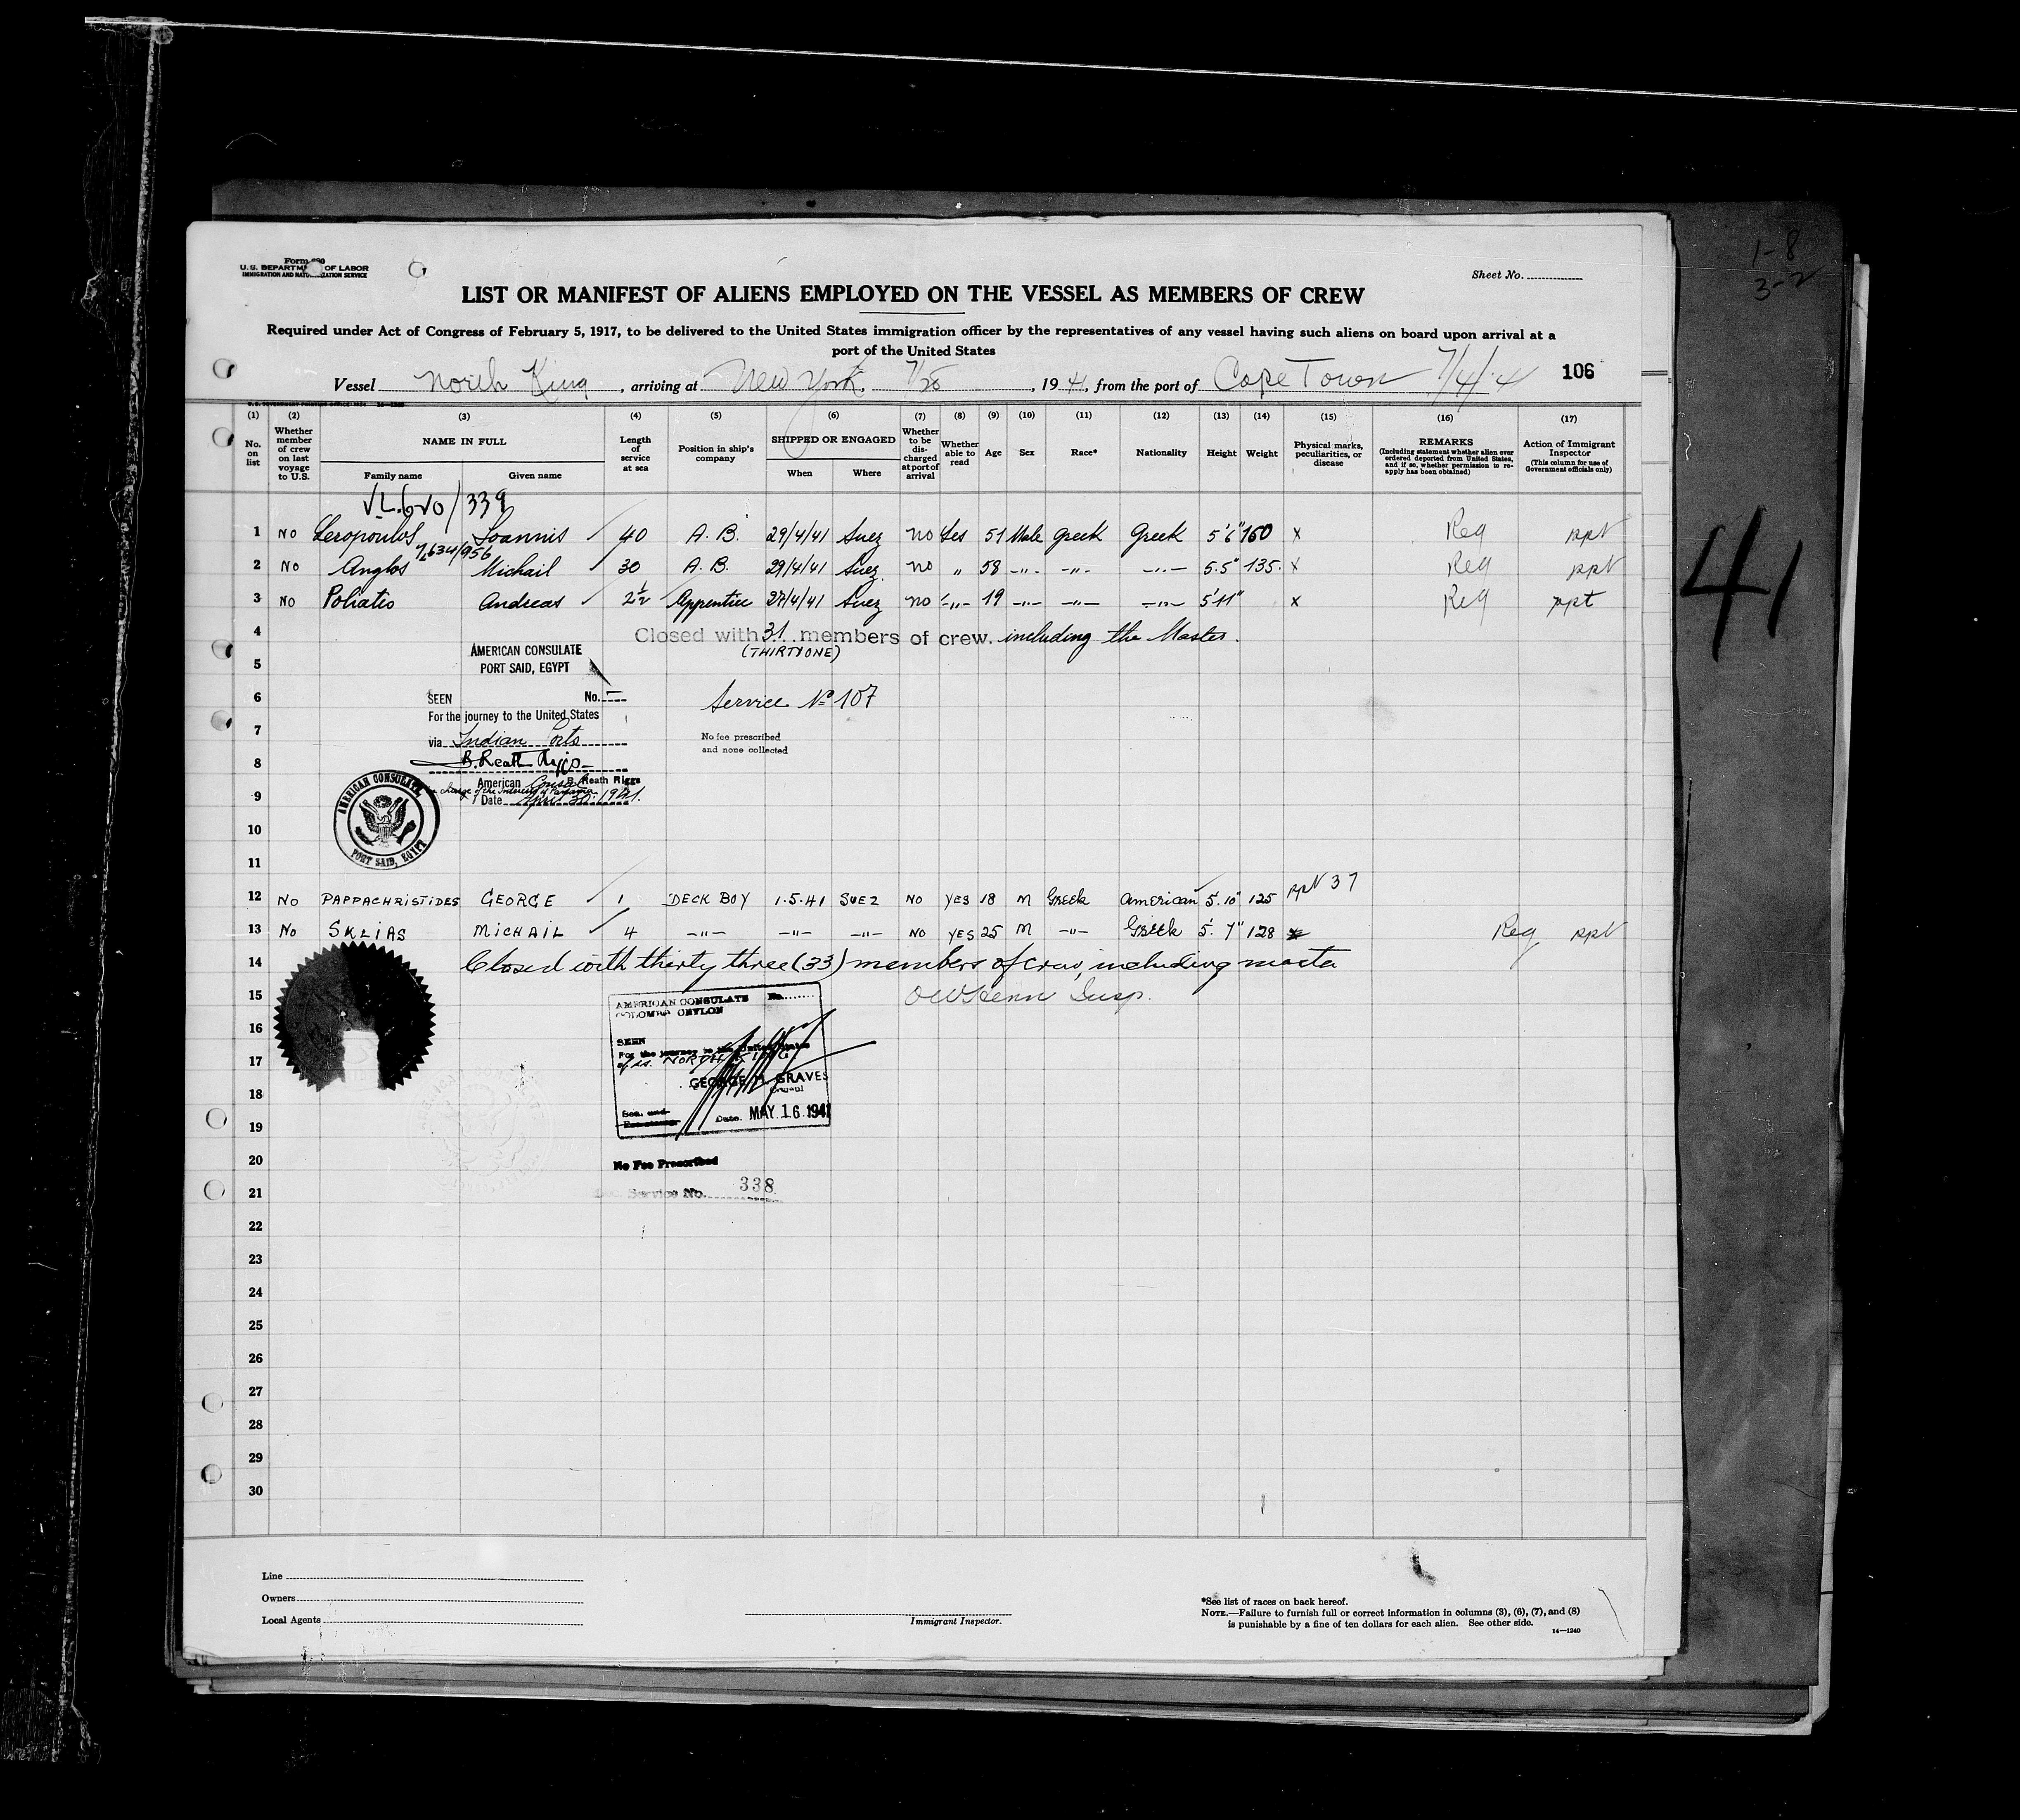 1-8
3-2
Form 680
U.S. DEPARTMENT OF LABOR
IMMIGRATION AND NATURALIZATION SERVICE
Sheet No.
LIST OR MANIFEST OF ALIENS EMPLOYED ON THE VESSEL AS MEMBERS OF CREW
Required under Act of Congress of February 5, 1917, to be delivered to the United States immigration officer by the representatives of any vessel having such aliens on board upon arrival at a
port of the United States
Vessel North King, arriving at New York, 7/28, 1941, from the port of Cape Town 7/4/41 106
(1) (2) (3) (4) (5) (6) (7) (8) (9) (10) (11) (12) (13) (14) (15) (16) (17)
No. on list Whether member of crew on last voyage to U.S. NAME IN FULL Family name Given name Length of service at sea Position in ship's company SHIPPED OR ENGAGED When Where Whether to be discharged at port of arrival Whether able to read Age Sex Race* Nationality Height Weight Physical marks, peculiarities, or disease REMARKS (Including statement whether alien ever ordered deported from United States, and if so, whether permission to reapply has been obtained) Action of Immigrant Inspector (This column for use of Government officials only)
1 No Leropoulos Joannis 40 A. B. 29/4/41 Suez no Yes 51 Male Greek Greek 5'6" 160 x Reg ppt
2 No Anglos Michail 30 A. B. 29/4/41 Suez no " 58 -"- -"- -"- 5.5" 135. x Reg ppt
3 No Poliatis Andreas 2½ Apprentice 29/4/41 Suez no -"- 19 -"- -"- -"- 5'11" x Reg ppt
4 Closed with 31 members of crew. including the Master.
(THIRTY ONE)
AMERICAN CONSULATE
PORT SAID, EGYPT
5
6 SEEN No. — Service No 107
For the journey to the United States
7 via Indian Ports No fee prescribed
and none collected
8 B. Reath Riggs
American Consul B. Reath Riggs
9 Date April 30. 1941.
AMERICAN CONSULATE
PORT SAID, EGYPT
10
11
12 No PAPPACHRISTIDES GEORGE 1 DECK BOY 1.5.41 SUEZ NO YES 18 M Greek American 5.10" 125 ppt 37
13 No SKLIAS MICHAIL 4 -"- -"- -"- NO YES 25 M -"- Greek 5.7" 128 x Reg ppt
14 Closed with thirty three (33) members of crew, including master
15 Insp.
AMERICAN CONSULATE No.
COLOMBO CEYLON
16 SEEN
For the journey to the United States
17 of ss. NORTH KING
GEORGE M. GRAVES
Consul
18 Date MAY 16 1941
19
20 No Fee Prescribed
21 Service No. 338
22
23
24
25
26
27
28
29
30
41
Line
Owners
Local Agents
Immigrant Inspector.
*See list of races on back hereof.
NOTE.—Failure to furnish full or correct information in columns (3), (6), (7), and (8)
is punishable by a fine of ten dollars for each alien. See other side.
14—1240